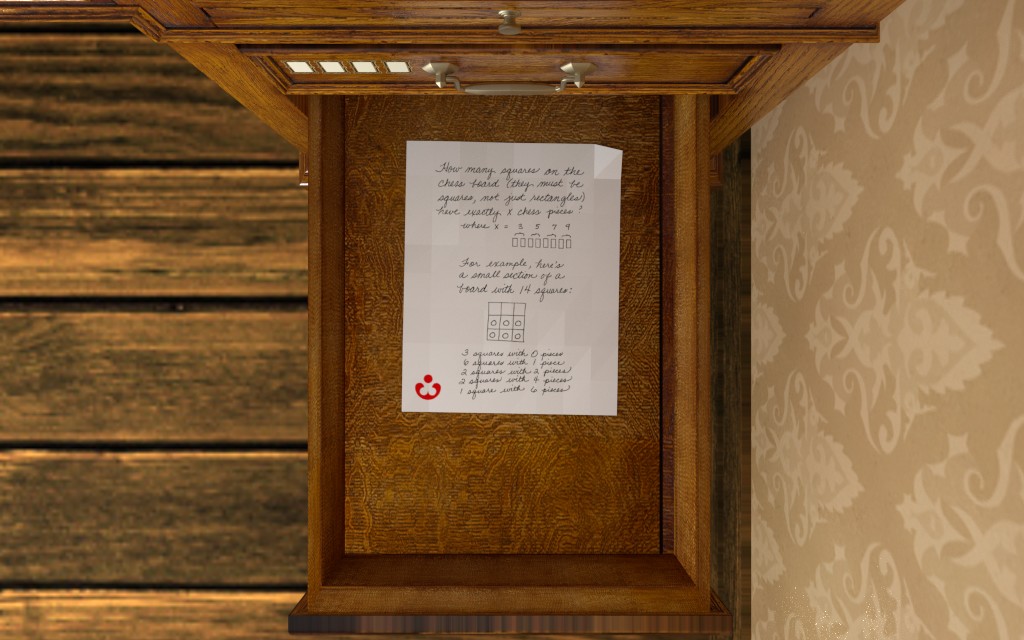 How many squares on the
chess board (they must be
squares, not just rectangles)
have exactly x chess pieces?
where x = 3 5 7 9
For example, here's
a small section of a
board with 14 squares:
3 squares with 0 pieces
6 squares with 1 piece
2 squares with 2 pieces
2 squares with 4 pieces
1 square with 6 pieces